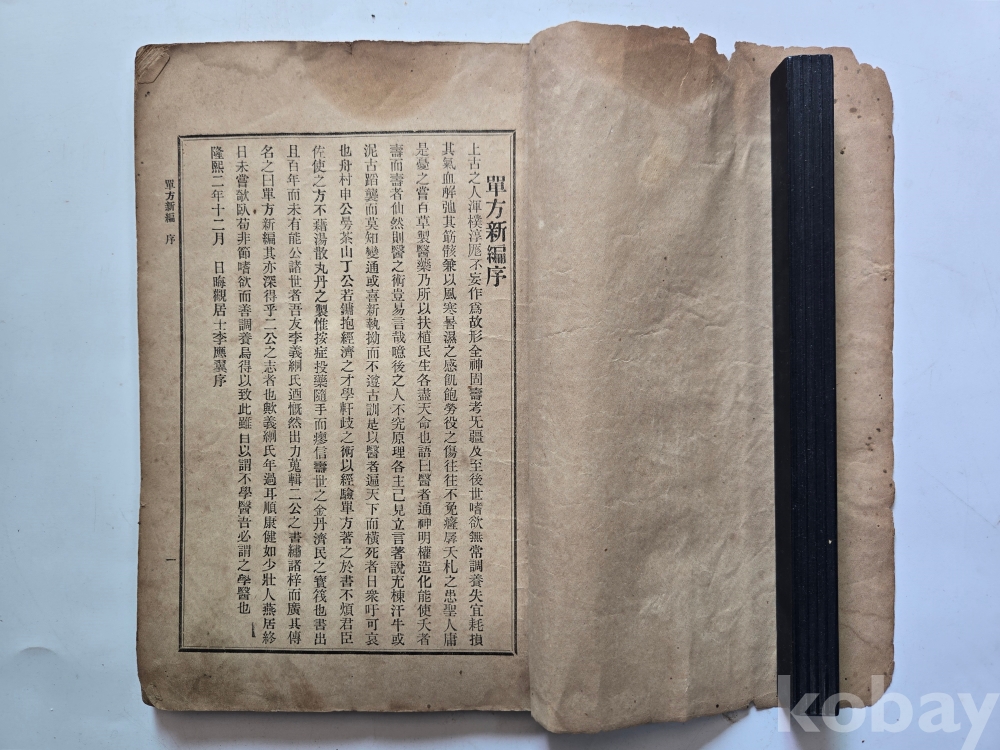 單方新編序
上古之人渾樸淳厖不妄作爲故形全神固壽考无疆及至後世嗜欲無常調養失宜耗損
其氣血解弛其筋骸兼以風寒暑濕之感飢飽勞役之傷往往不免癃孱夭札之患聖人庸
是憂之嘗百草製醫藥乃所以扶植民生各盡天命也語曰醫者通神明權造化能使夭者
壽而壽者仙然則醫之術豈易言哉噫後之人不究原理各主己見立言著說充棟汗牛或
泥古蹈襲而莫知變通或喜新執拗而不遵古訓是以醫者遍天下而橫死者日衆吁可哀
也舟村申公曁茶山丁公若鏞抱經濟之才學軒歧之術以經驗單方著之於書不煩君臣
佐使之方不藉湯散丸丹之製惟按症投藥隨手而瘳信壽世之金丹濟民之寶筏也書出
且百年而未有能公諸世者吾友李義絅氏迺慨然出力蒐輯二公之書繡諸梓而廣其傳
名之曰單方新編其亦深得乎二公之志者也歟義絅氏年過耳順康健如少壯人燕居終
日未嘗欹臥苟非節嗜欲而善調養烏得以致此雖曰以謂不學醫吾必謂之學醫也
隆熙二年十二月　日晦觀居士李應翼序
單方新編　序
一
kobay